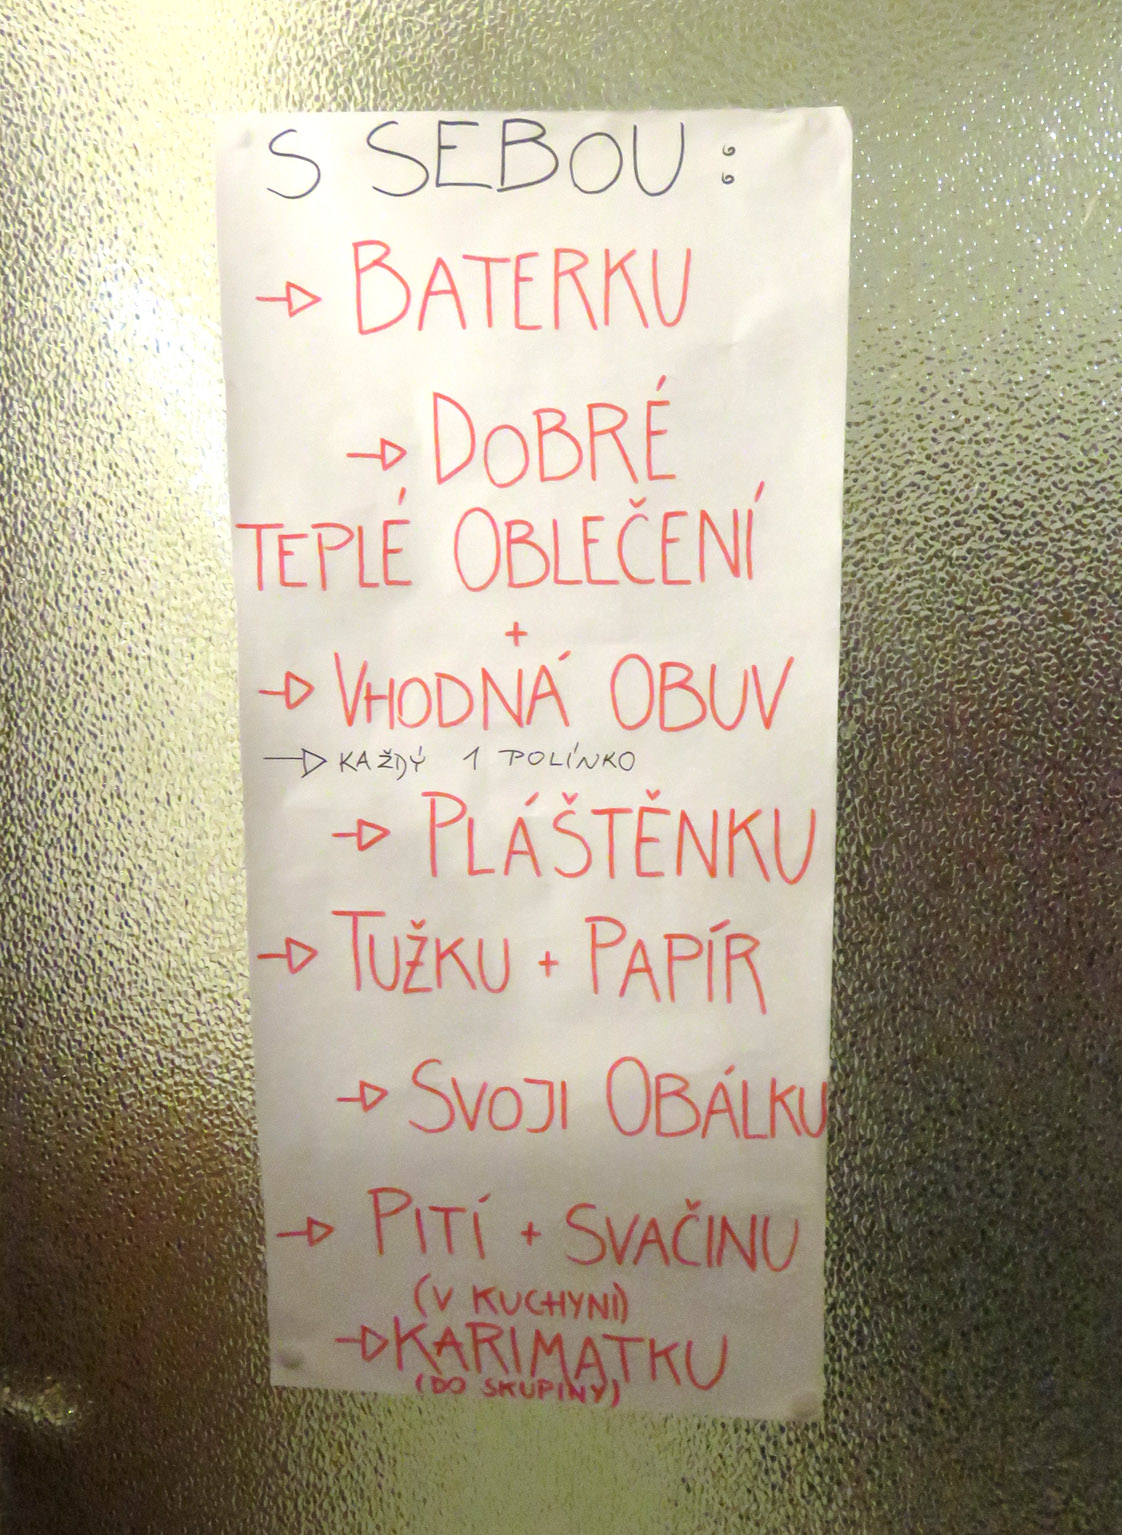 S SEBOU :
→ BATERKU
→ DOBRÉ
TEPLÉ OBLEČENÍ
+
→ VHODNÁ OBUV
→ KAŽDÝ 1 POLÍNKO
→ PLÁŠTĚNKU
→ TUŽKU + PAPÍR
→ SVOJI OBÁLKU
→ PITÍ + SVAČINU
(V KUCHYNI)
→ KARIMATKU
(DO SKUPINY)